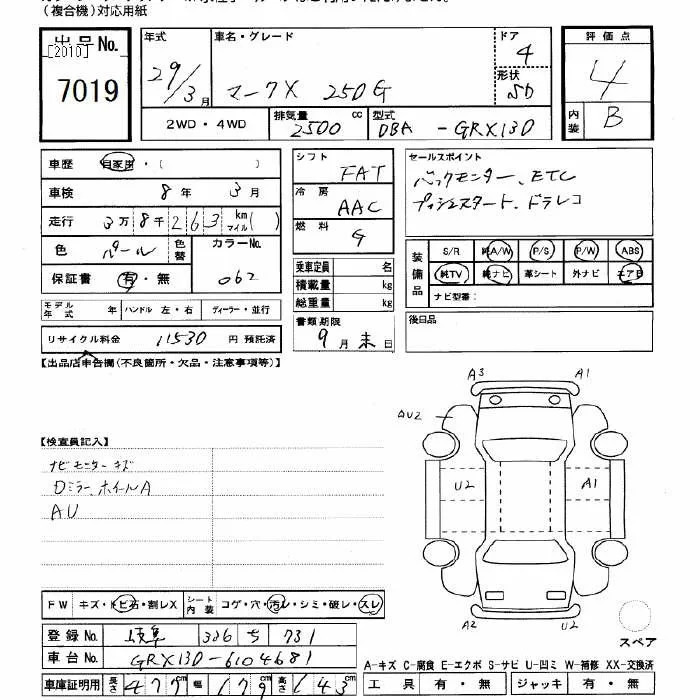 (複合機)対応用紙
出品No.
[2010]
7019
年式
29/3月
車名・グレード
マークX 250G
ドア
4
形状
SD
2WD・4WD
排気量
2500 cc
型式
DBA -GRX130
評価点
4
内装
B
車歴 自家用・( )
車検 8年 3月
走行 3万8千263 km マイル( )
色 パール 色替
カラーNo.
062
保証書 有・無
モデル年式 年 ハンドル 左・右 ディーラー・並行
リサイクル料金 11530 円 預託済
シフト FAT
冷房 AAC
燃料 G
乗車定員 名
積載量 kg
総重量 kg
書類期限
9月末日
セールスポイント
バックモニター、ETC
プッシュスタート、ドラレコ
装備品
S/R 純A/W P/S P/W ABS
純TV 純ナビ 革シート 外ナビ エアB
ナビ型番:
後日品
【出品店申告欄(不良箇所・欠品・注意事項等)】
【検査員記入】
ナビモニターキズ
Dミラー、ホイールA
AU
A3 A1
AU2
U2 A1
A2 U2
スペア
FW キズ・トビ石・割レX シート内装 コゲ・穴・汚レ・シミ・破レ・スレ
登録No. 岐阜 326 ち 731
車台No. GRX130-6104681
車庫証明用 長さ 477 幅 179 高さ 143
A-キズ C-腐食 E-エクボ S-サビ U-凹ミ W-補修 XX-交換済
工具 有・無 ジャッキ 有・無